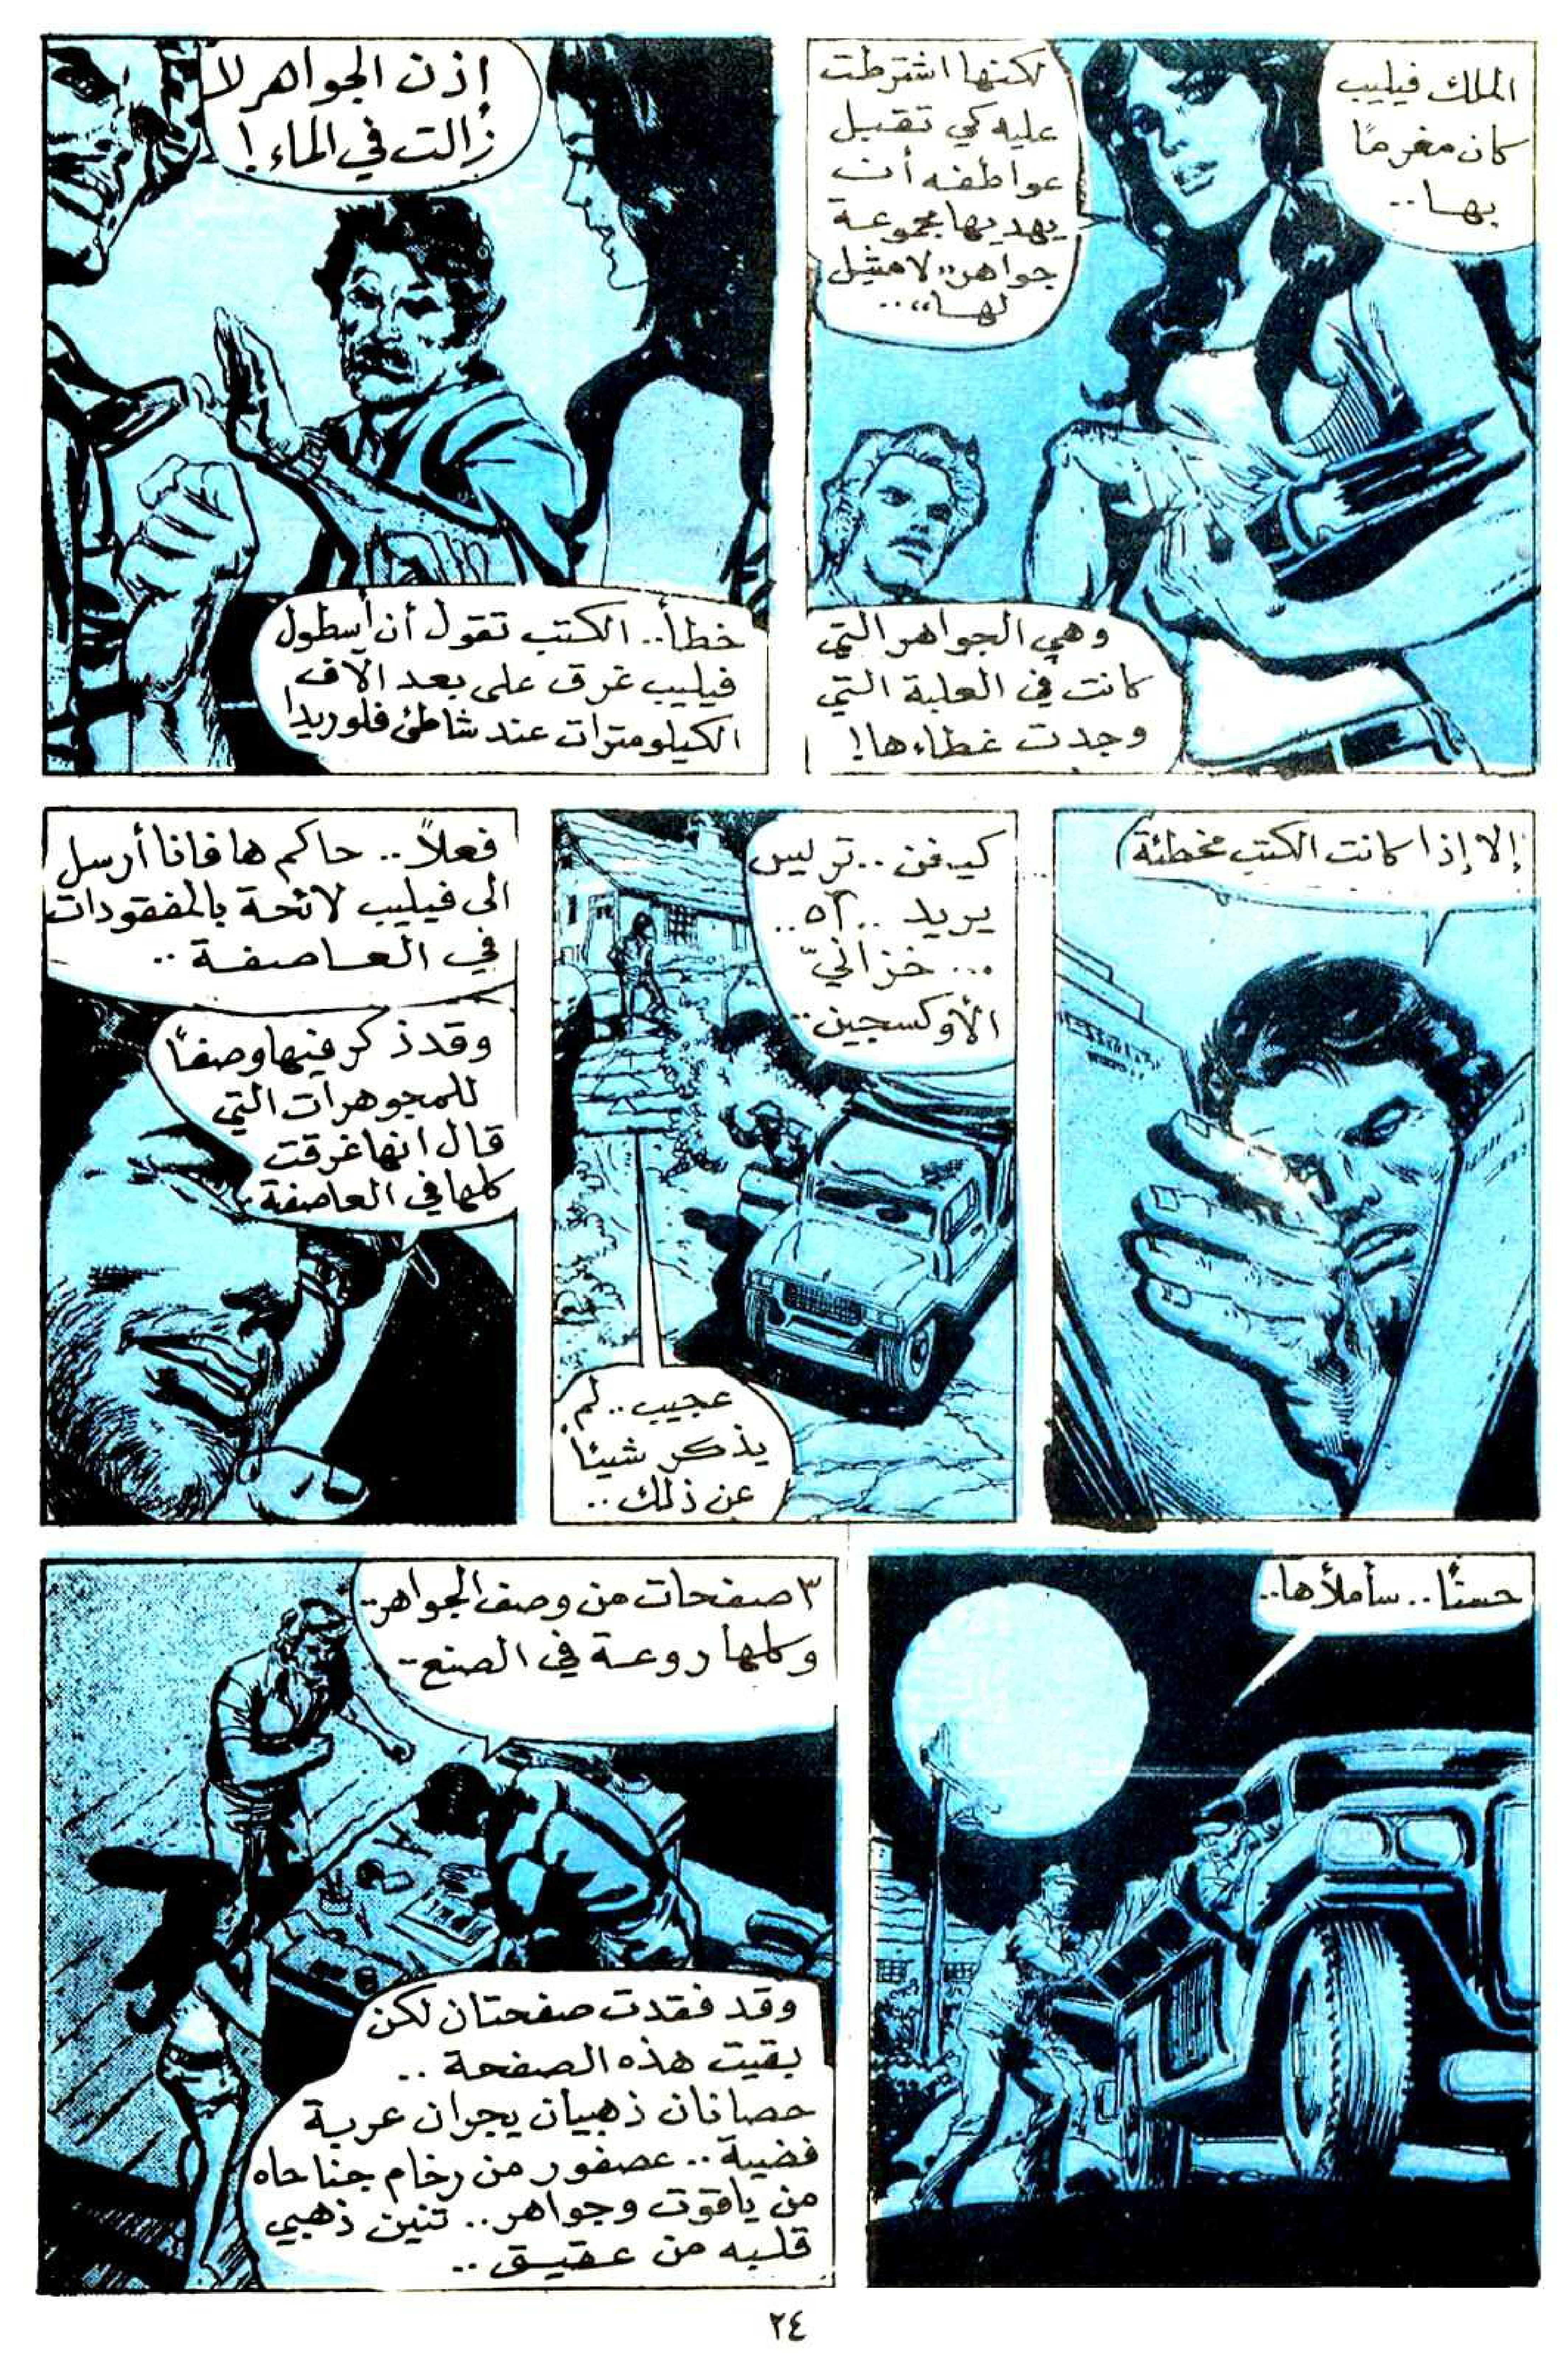 الملك فيليب
كان مغرمًا
بها..
لكنها اشترطت
عليه كي تقبل
عواطفه أن
يهديها مجموعة
جواهر "لا مثيل
لها"..
وهي الجواهر التي
كانت في العلبة التي
وجدت غطاءها!
إذن الجواهر لا
زالت في الماء!
خطأ.. الكتب تقول أن أسطول
فيليب غرق على بعد آلاف
الكيلومترات عند شاطئ فلوريدا
إلا إذا كانت الكتب مخطئة
كيفن.. تريس
يريد.. ٥٢..
... خزانيّ
الأوكسجين..
عجيب.. لم
يذكر شيئًا
عن ذلك..
فعلاً.. حاكم هافانا أرسل
الى فيليب لائحة بالمفقودات
في العاصفة..
وقد ذكر فيها وصفًا
للمجوهرات التي
قال انها غرقت
كلها في العاصفة
حسنًا.. سأملأها..
٣ صفحات من وصف الجواهر..
وكلها روعة في الصنع..
وقد فقدت صفحتان لكن
بقيت هذه الصفحة..
حصانان ذهبيان يجران عربة
فضية.. عصفور من رخام جناحاه
من ياقوت وجواهر.. تنين ذهبي
قلبه من عقيق..
٢٤